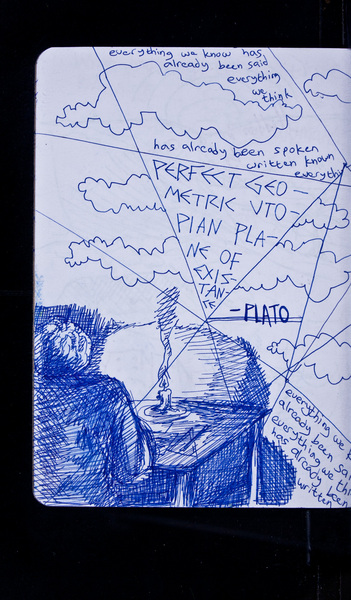 everything we know has
already been said
everything
we
think
has already been spoken
written known
everythi
PERFECT GEO-
METRIC UTO-
PIAN PLA-
NE OF
EXIS-
TAN-
TE
-PLATO
everything we k
already been sai
everything we thi
has already been
written